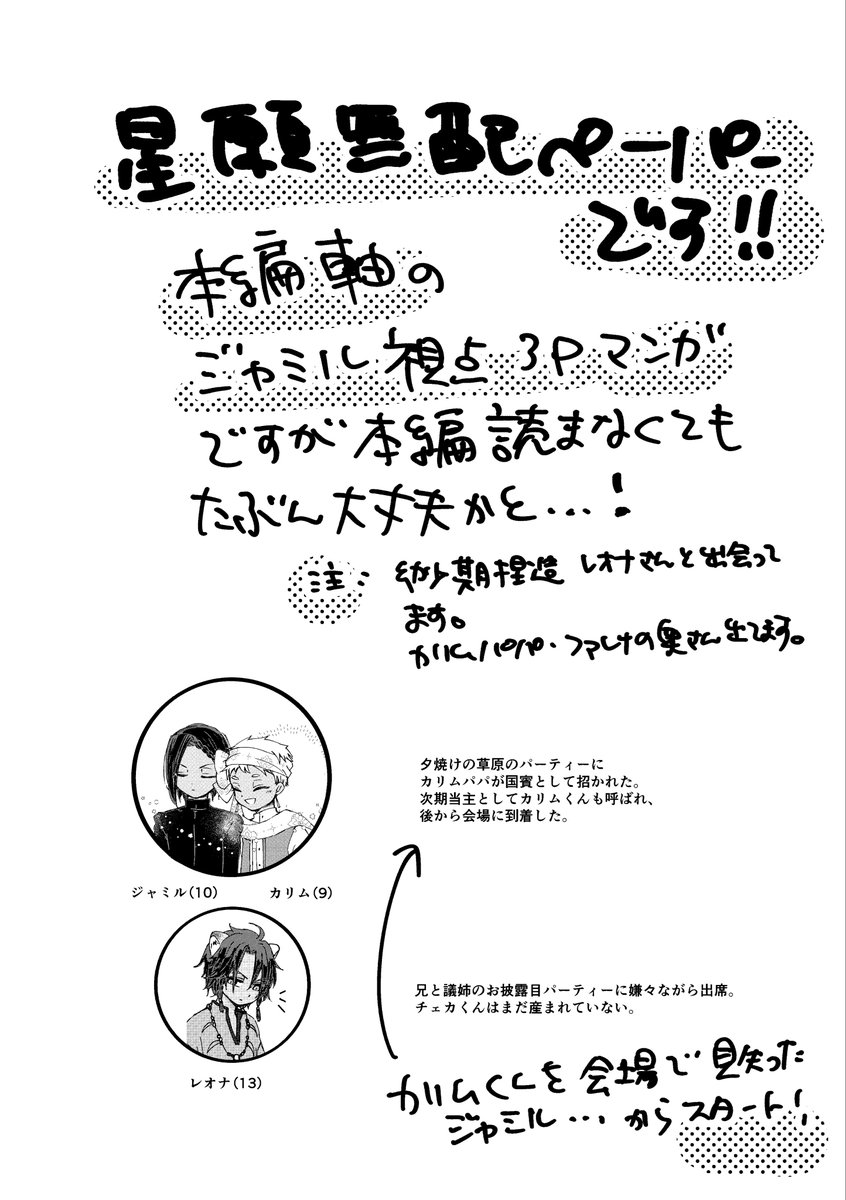 星願無配ペーパー
です!!
本編軸の
ジャミル視点 3Pマンガ
ですが本編読まなくても
たぶん大丈夫かと...!
注: 幼少期捏造 レオナさんと出会って
ます。
カリムパパ・ファレナの奥さん出てます。
夕焼けの草原のパーティーに
カリムパパが国賓として招かれた。
次期当主としてカリムくんも呼ばれ、
後から会場に到着した。
ジャミル(10) カリム(9)
兄と議姉のお披露目パーティーに嫌々ながら出席。
チェカくんはまだ産まれていない。
レオナ(13)
カリムくんを会場で見失った
ジャミル...からスタート!